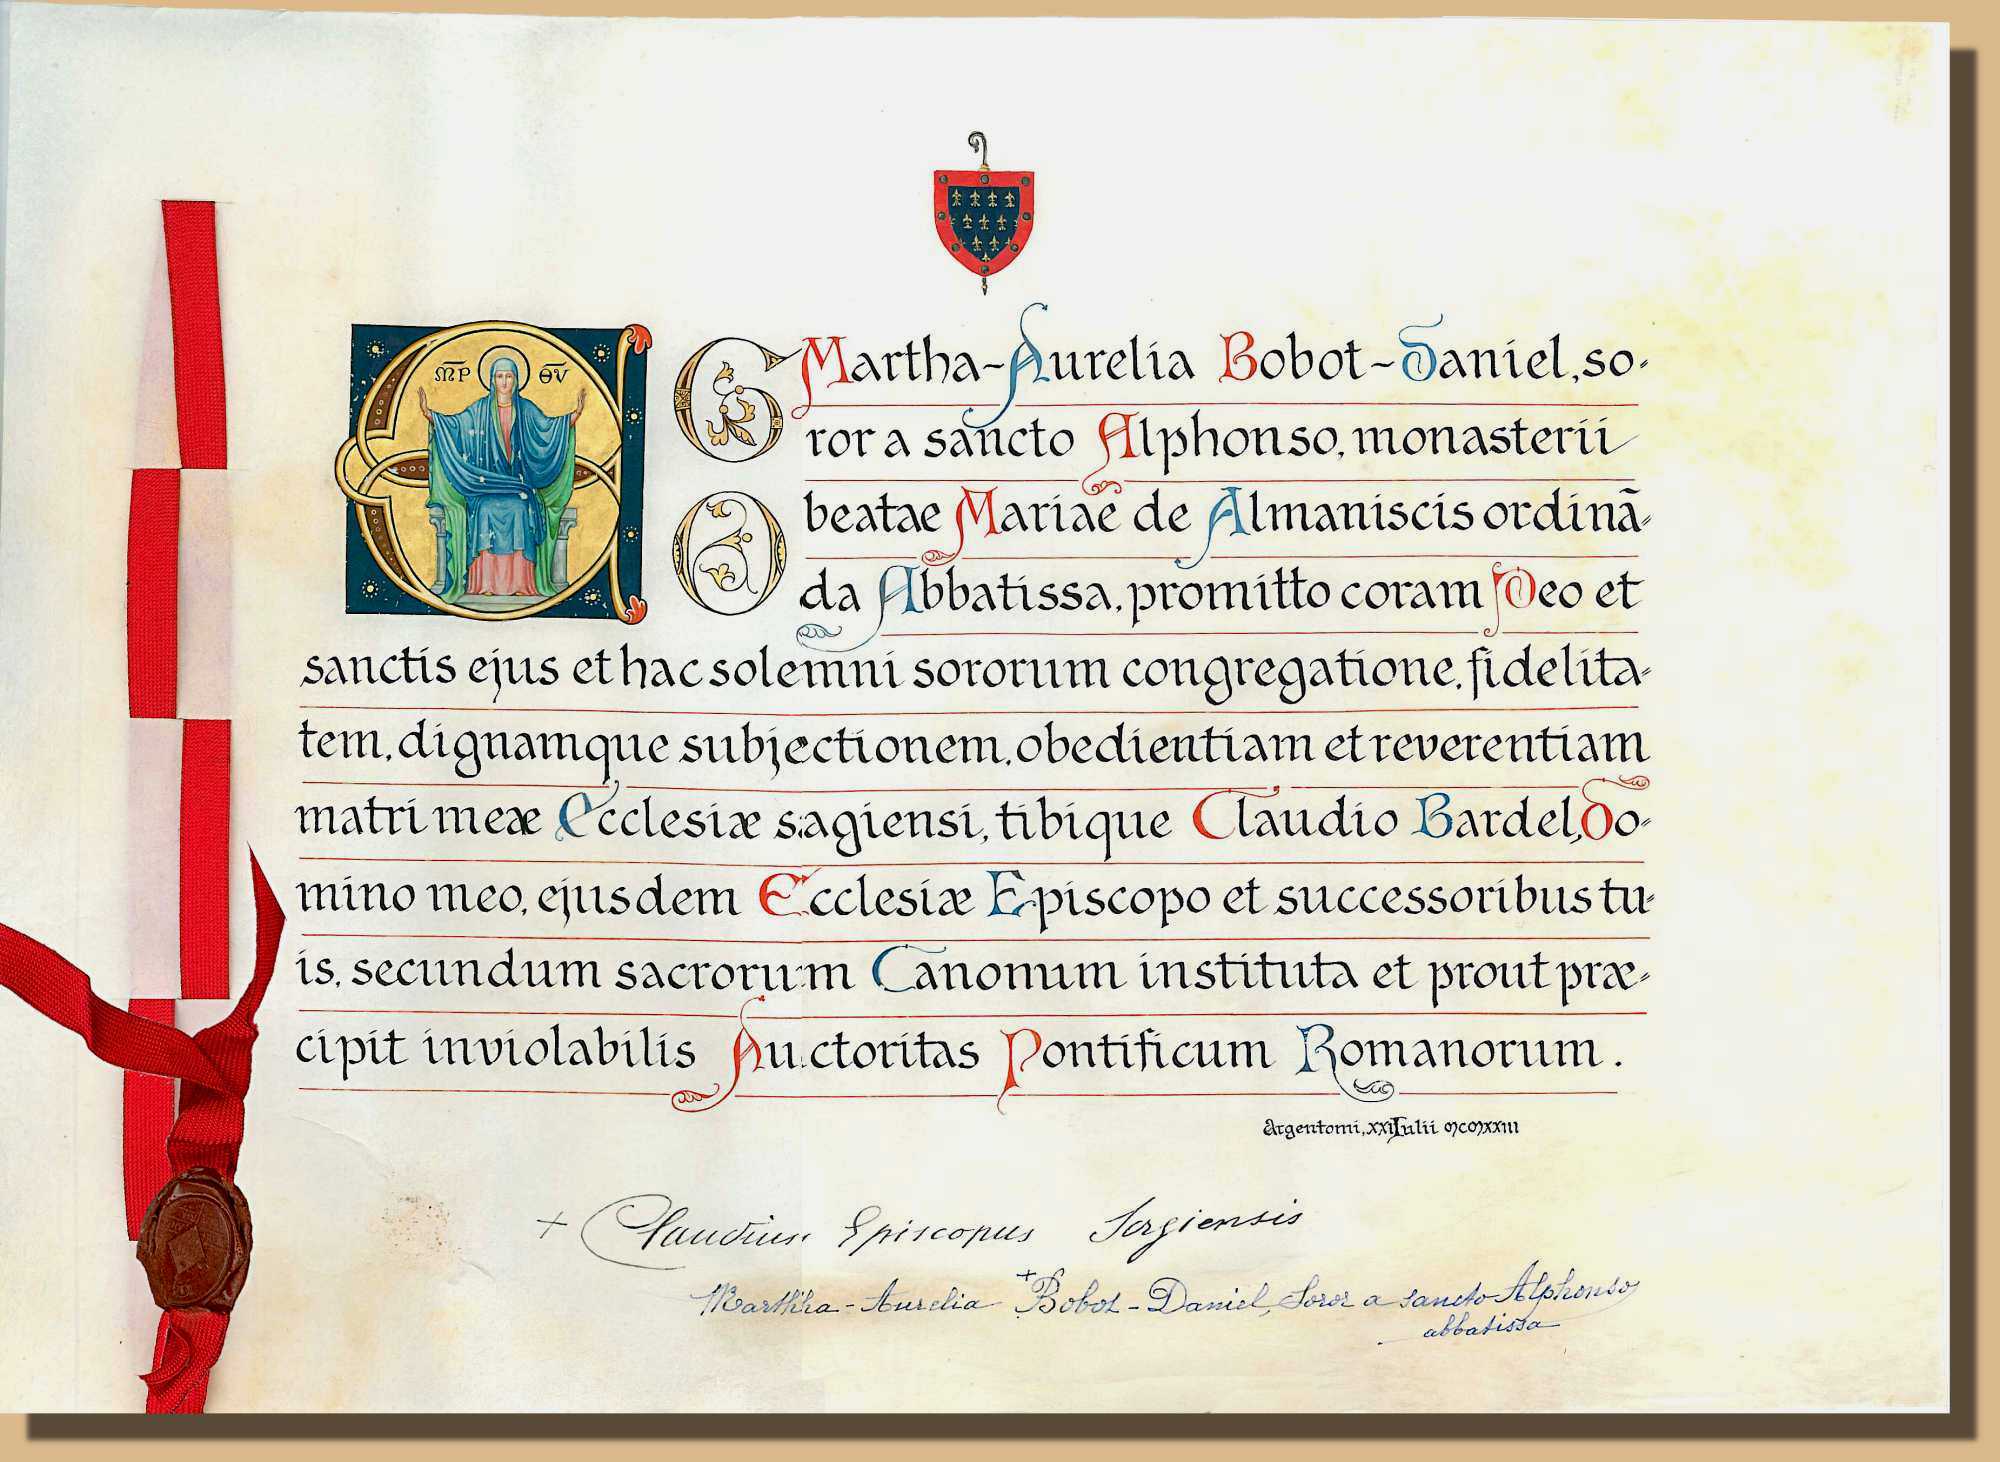 M̅P̅ Θ̅V̅
EGO Martha-Aurelia Bobot-Daniel, so-
ror a sancto Alphonso, monasterii
beatae Mariae de Almaniscis ordinā-
da Abbatissa, promitto coram Deo et
sanctis ejus et hac solemni sororum congregatione, fidelita-
tem, dignamque subjectionem, obedientiam et reverentiam
matri meæ Ecclesiæ sagiensi, tibique Claudio Bardel, Do-
mino meo, ejusdem Ecclesiæ Episcopo et successoribus tu-
is, secundum sacrorum Canonum instituta et prout præ-
cipit inviolabilis Auctoritas Pontificum Romanorum.
Argentomi, XXI Iulii MCMXXIII
+ Claudius Episcopus Sagiensis
Martha-Aurelia + Bobot-Daniel, Soror a sancto Alphonso
abbatissa